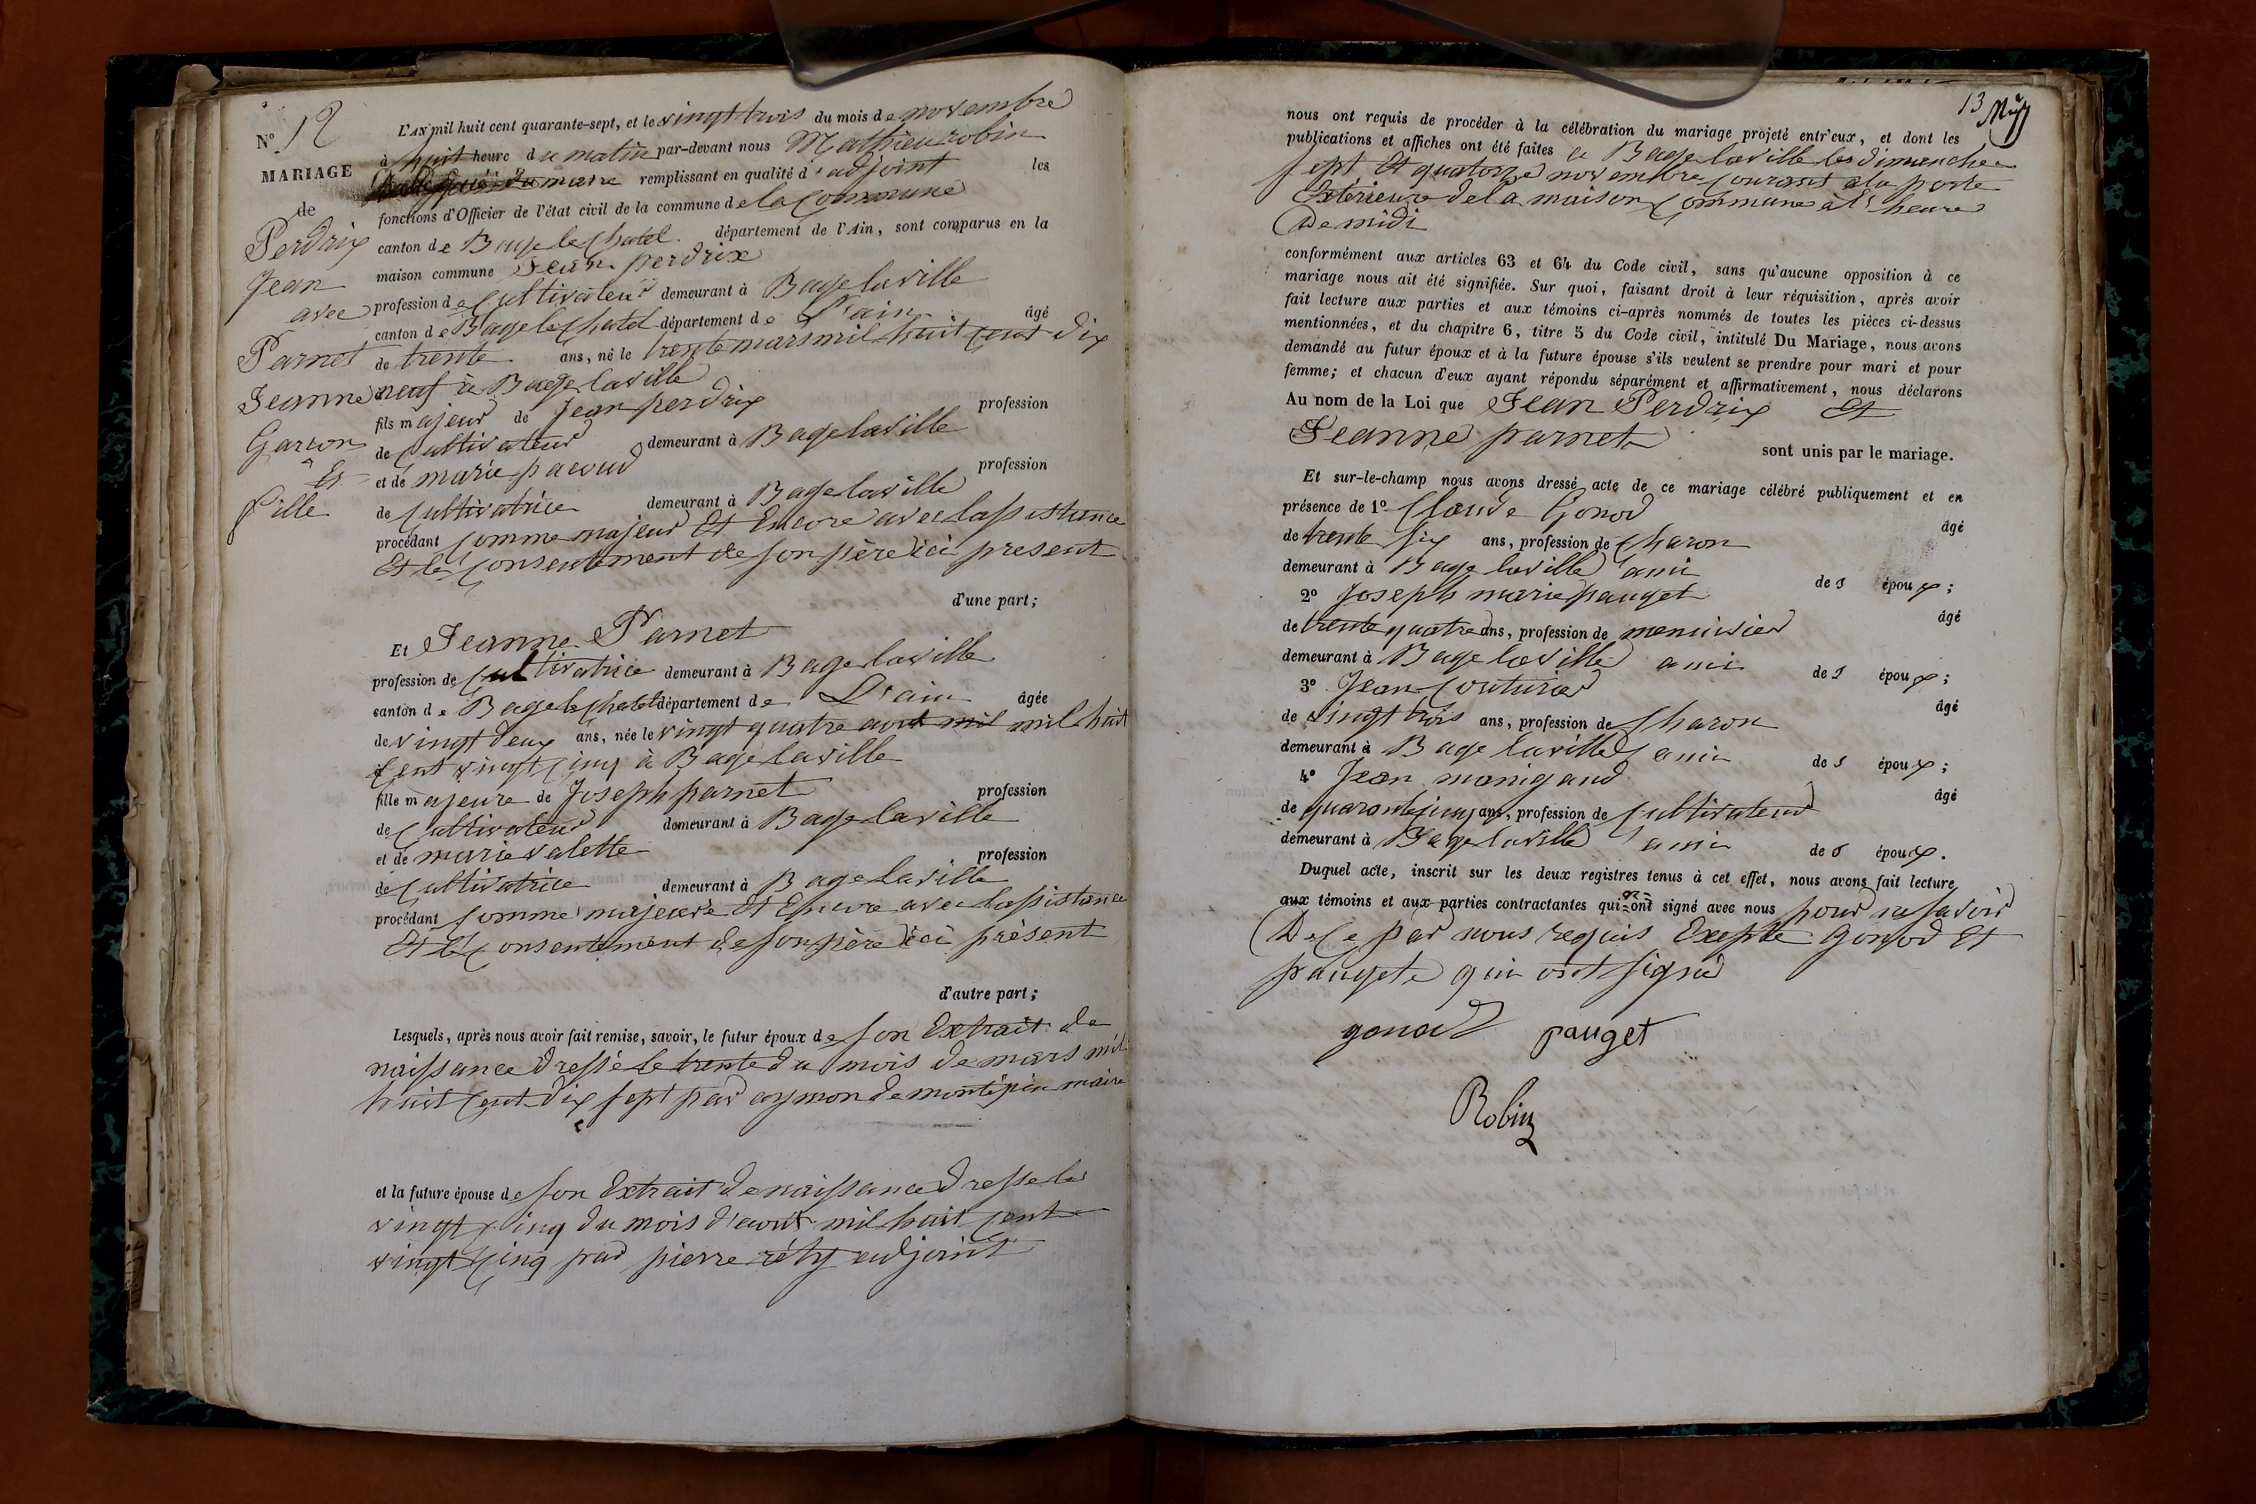 N° 12
MARIAGE
de
Perdrix
Jean
avec
Parnet
Jeanne
Garson
Et
fille
L'AN mil huit cent quarante-sept, et le vingt trois du mois de novembre
à huit heure du matin par-devant nous Mathieu robin
maire remplissant en qualité d'adjoint les
fonctions d'Officier de l'état civil de la commune de la Commune
canton de Bage le Chatel département de l'Ain, sont comparus en la
maison commune Jean perdrix
profession de Cultivateur demeurant à Bage laville
canton de Bage le Chatel département de L'ain âgé
de trente ans, né le trente mars mil huit Cent dix
neuf à Bage laville
fils majeur de Jean perdrix profession
de Cultivateur demeurant à Bage laville
et de marie pacoud profession
de Cultivatrice demeurant à Bage laville
procédant Comme majeur Et Encore avec lassistance
Et le Consentement de son père ici present
d'une part;
Et Jeanne Parnet
profession de Cultivatrice demeurant à Bage laville
canton de Bage le Chatel département de L'ain âgée
de vingt deux ans, née le vingt quatre aout mil mil huit
Cent vingt Cinq à Bage laville
fille majeure de Joseph parnet profession
de Cultivateur demeurant à Bage laville
et de marie valette profession
de Cultivatrice demeurant à Bage laville
procédant Comme majeure Et Encore avec lassistance
Et le Consentement de son père ici présent
d'autre part;
Lesquels, après nous avoir fait remise, savoir, le futur époux de son Extrait de
naissance dressé le trente du mois de mars mil
huit Cent dix sept par aymon de montépin maire
et la future épouse de son Extrait de naissance dresse le
vingt Cinq du mois d'aout mil huit Cent
vingt Cinq par pierre réty adjoint
13
nous ont requis de procéder à la célébration du mariage projeté entr'eux, et dont les
publications et affiches ont été faites a Bage laville les dimanche
sept Et quatorze novembre Courant a la porte
Extérieure de la maison Commune a l'heure
De midi
conformément aux articles 63 et 64 du Code civil, sans qu'aucune opposition à ce
mariage nous ait été signifiée. Sur quoi, faisant droit à leur réquisition, après avoir
fait lecture aux parties et aux témoins ci-après nommés de toutes les pièces ci-dessus
mentionnées, et du chapitre 6, titre 5 du Code civil, intitulé Du Mariage, nous avons
demandé au futur époux et à la future épouse s'ils veulent se prendre pour mari et pour
femme; et chacun d'eux ayant répondu séparément et affirmativement, nous déclarons
Au nom de la Loi que Jean Perdrix Et
Jeanne parnet sont unis par le mariage.
Et sur-le-champ nous avons dressé acte de ce mariage célébré publiquement et en
présence de 1° Claude Gonod âgé
de trente six ans, profession de Charon
demeurant à Bage laville ami des époux;
2° Joseph marie pauget âgé
de trente quatre ans, profession de menuisier
demeurant à Bage laville ami des époux;
3° Jean Couturier âgé
de vingt trois ans, profession de Charon
demeurant à Bage laville ami des époux;
4° Jean manigand âgé
de quarante Cinq ans, profession de Cultivateur
demeurant à Bage laville ami des époux.
Duquel acte, inscrit sur les deux registres tenus à cet effet, nous avons fait lecture
aux témoins et aux parties contractantes qui n'ont signé avec nous pour ne savoir
De Ce par nous requis Exepte gonod Et
pauget qui ont signé
gonod pauget
Robin